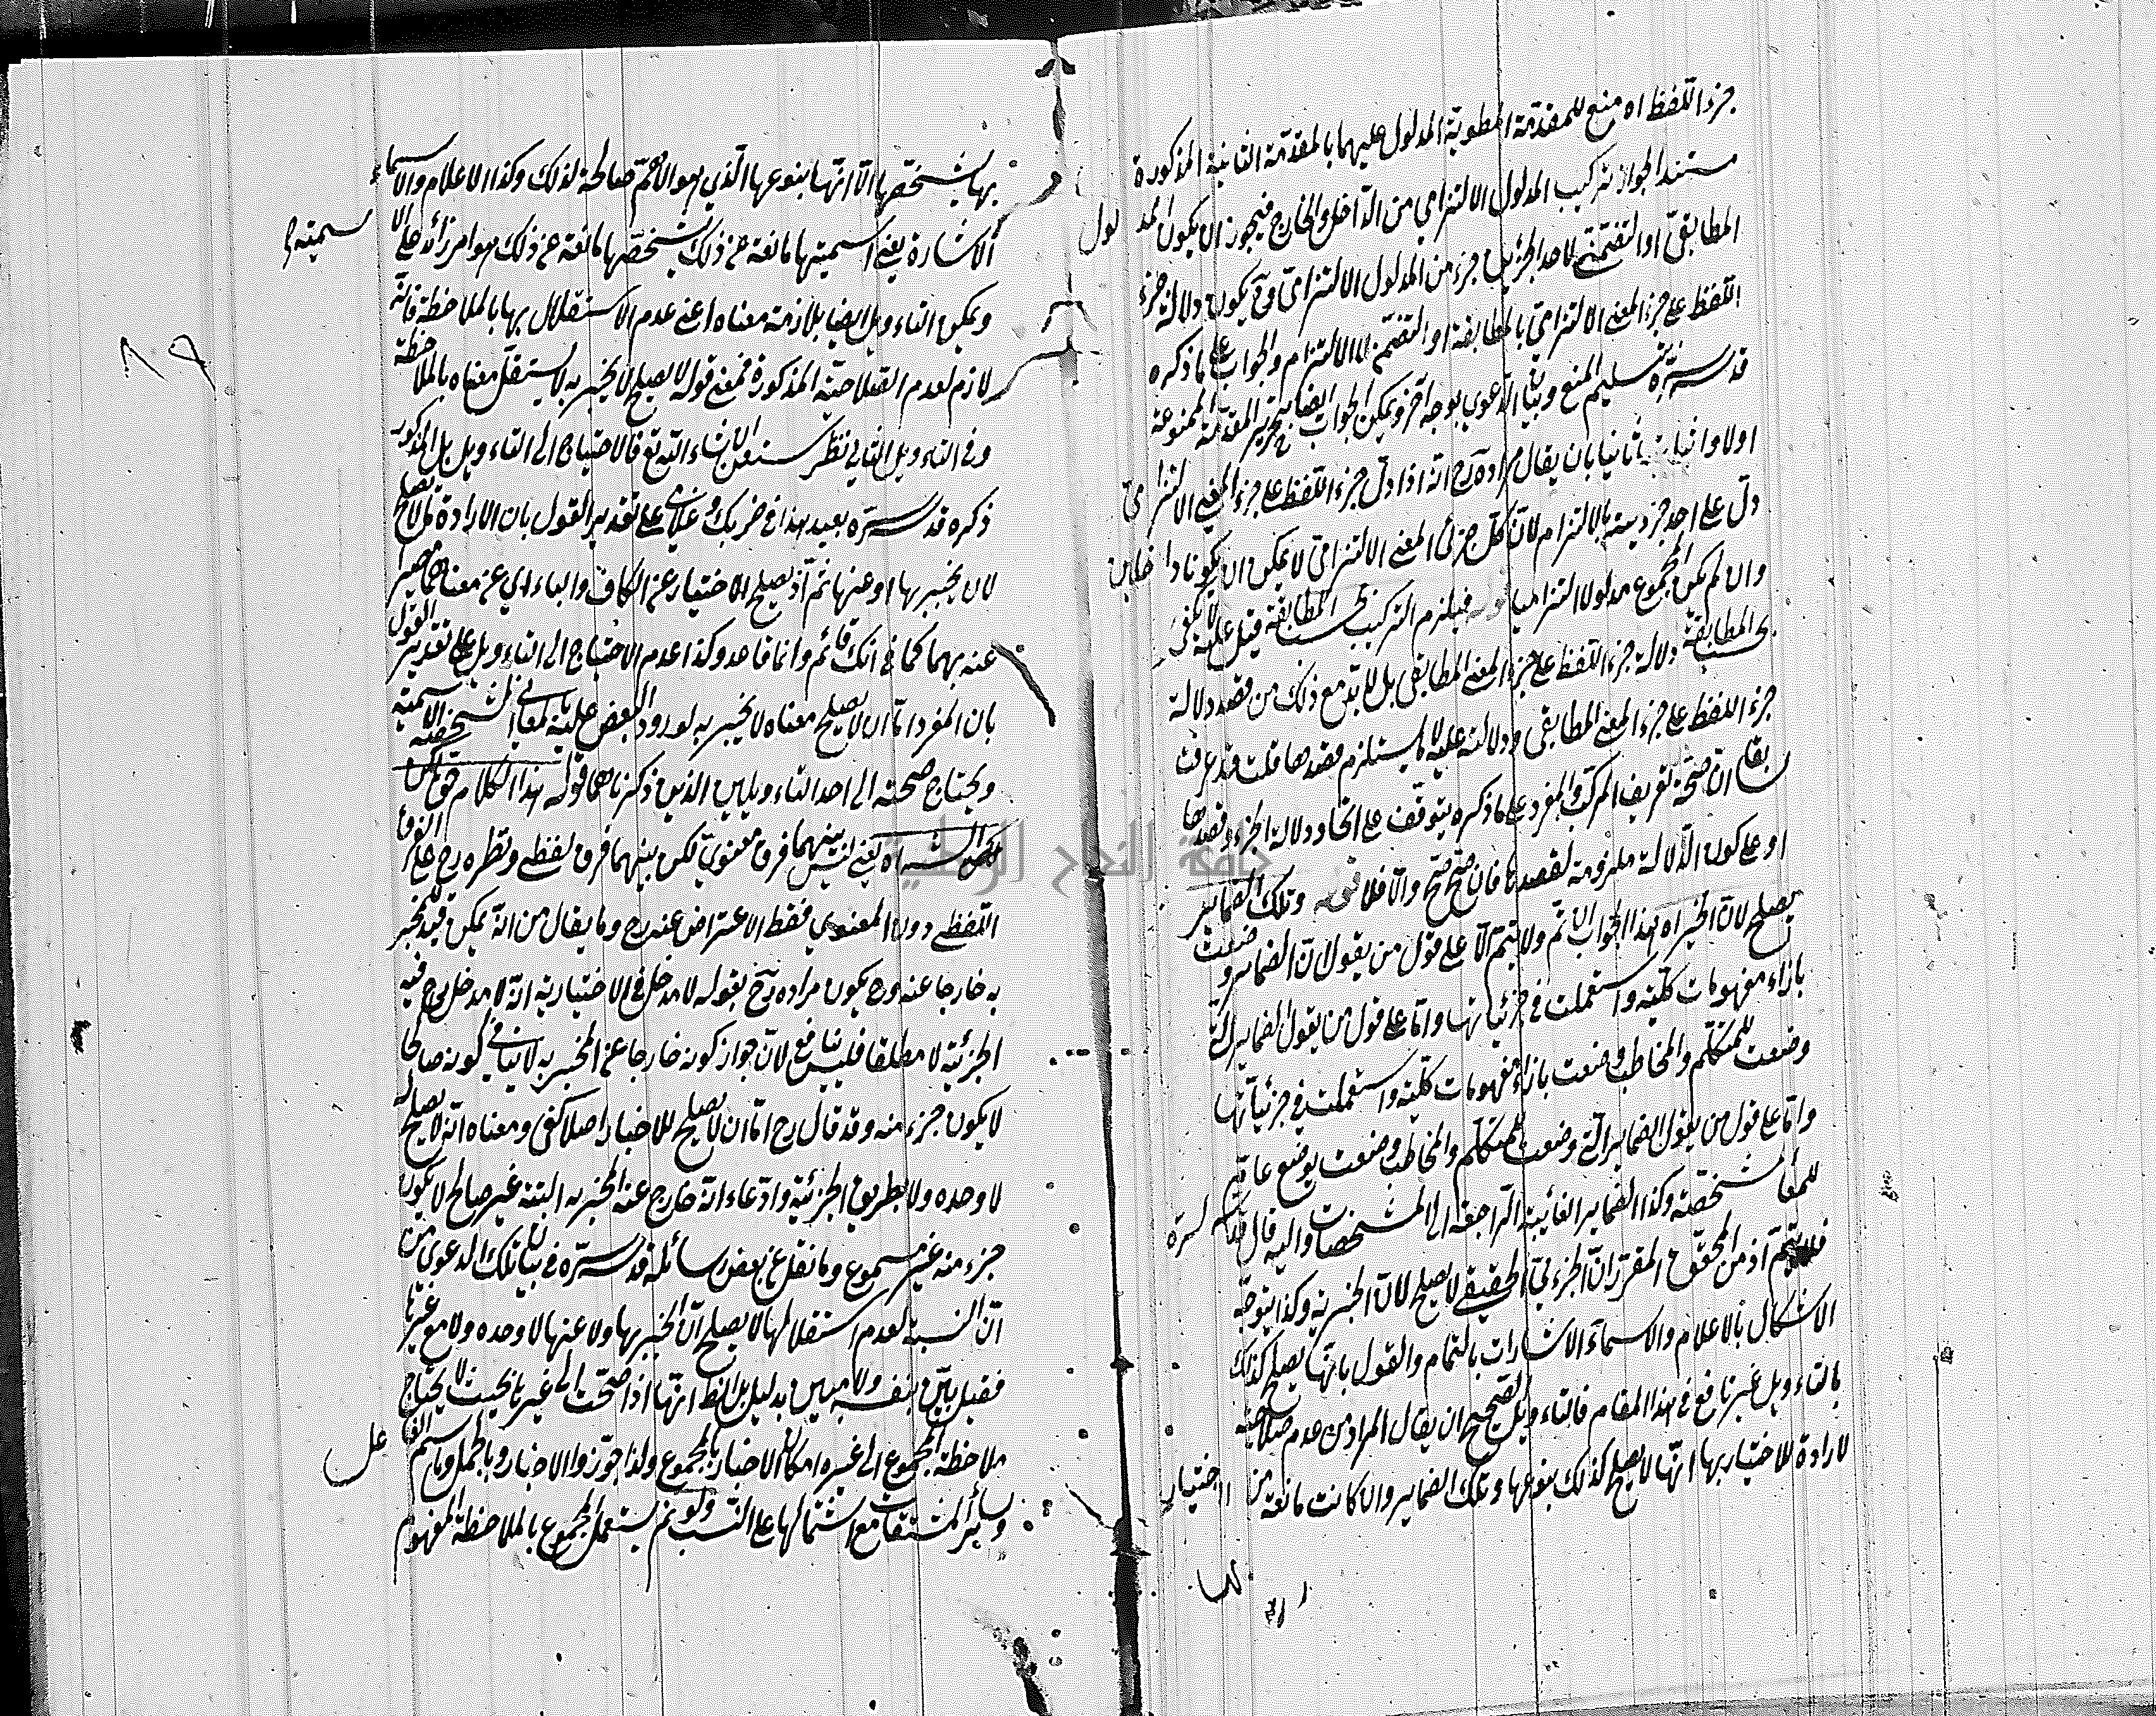 جزء اللفظ اه منع للمقدمة المطوية المدلول عليهما بالمقدمة الثانية المذكورة
مستند الجواز تركيب المدلول الالتزامي من الداخل والخارج فيجوز ان يكون المد لول
المطابقي او التضمني لاحد الجزئين جزء من المدلول الالتزامي وح يكون دلالة جزء
اللفظ على جزء المعنى الالتزامي بالمطابقة او التضمن لا الالتزام والجواب على ما ذكره
قدس سره تسليم المنع وبيان الدعوى بوجه آخر ويمكن الجواب ايضا بتحرير المقدمة الممنوعة
اولا واثباته ثانيا بان يقال مراده رح انه اذا دل جزء اللفظ على جزء المعنى الالتزامي
دل على احد جزئيه بالالتزام لان كل جزئي المعنى الالتزامي لا يمكن ان يكونا داخلين
وان لم يكن المجموع مدلولا التزاميا قوله فيلزم التركيب بحسب المطابقة قيل عليه لا يكفي
بحسب المطابقة دلالة جزء اللفظ على جزء المعنى المطابقي بل لا بد مع ذلك من قصد دلالة
جزء اللفظ على جزء المعنى المطابقي ودلالته عليه لا يستلزم قصدها قلت قد عرفت
بقا ان صحة تعريف المركب والمفرد على ما ذكره يتوقف على اتحاد دلالة الجزء وقصدها
او على كون الدلالة ملزومة لقصدها فان صح صح والا فلا قوله وتلك الضماير
يصلح لان الخبر اه هذا الجواب لا تم ولا يتم الا على قول من يقول لان الضماير وضعت
بازاء مفهومات كلية واستعملت في جزئياتها واما على قول من يقول الضماير التي
وضعت للمتكلم والمخاطب وضعت بازاء مفهومات كلية واستعملت في جزئياتها
واما على قول من يقول الضماير التي وضعت للمتكلم والمخاطب وضعت بوضع عام
للمعا مشخصة وكذا الضماير الغائبة الراجعة الى المشخصات واليه قال قدس سره
فلا يتم اذ من المحقق المقرر ان الجزئي الحقيقي لا يصلح لان الخبر به وكذا يتوجه
الاشكال بالاعلام والاسماء الاشارات بالتمام والقول بانها يصلح كذلك
بالتاءويل غير نافع في هذا المقام فالتاءويل الصحيح ان يقال المراد من عدم صلاحية
لارادة للاختيار بها انها لا يصلح كذلك بنوعها وتلك الضماير وان كانت مانعة من الاختيار
بها بشخصها الا انها بنوعها الذي هو الاهم صالحة لذلك وكذا الاعلام والاسماء
الاشارة يعني اسميتها مانعة عن ذلك بشخصها مانعة عن ذلك هو امر زائد على الا سميته
ويمكن التاءويل ايضا بلازمة معناه اعني عدم الاستقلال بها بالملاحظة فانه
لازم لعدم الصلاحية المذكورة فمعنى قوله لا يصلح لان يخبر به لا يستقل معناه بالملاحظة
وفي التاءويل الثاني نظر ستعرف ان شاء الله تع فالاحتياج الى التاءويل بل المذكور
ذكره قدس سره بعيد هذا في ضربك وغلامي على تقدير القول بان الارادة لا تصلح
لان يخبر بها او عنها ثم اذ يصلح للاختيار عن الكاف والياء اي عن معناهما
عنه بهما كما في انك قائم وانا قاعد وكذا عدم الاحتياج الى التاءويل على تقدير القول
بان المفرد اما ان لا يصلح معناه لا يخبر به لورود البعض عليه لمعاني الشخصية الاسمية
ويحتاج صحته الى احد التاءويلين الذين ذكرناهما قوله هذا الكلام
يعني ليس بينهما فرق معنوي لكن بينهما فرق لفظي ونظره رح على الفرق
اللفظي دون المعنوي فقط الاعتراض عنه رح وما يقال من انه يمكن قيد المخبر
به خارجا عنه وح يكون مراده رح بقوله لا مدخل في الاختيارية انه لا مدخل رح فيه
الجزئية لا مطلقا فليس نافع لان جواز كونه خارجا عن المخبر به لا ينافي كونه صالحا
لا يكون جزء منه وقد قال رح اما ان لا يصلح للاخبار اصلا كفي ومعناه انه لا يصلح له
لا وحده ولا بطريق الجزئية وادعاء انه خارج عنه المخبر به البتة غير صالح لان يكون
جزء منه غير مسموع وما نقل عن بعض رسائله قدس سره في بيان تلك الدعوى من
ان النسب لعدم استقلالها لا يصلح ان يخبر بها ولا عنها لا وحده ولا مع غيرها
فقيل بين بنفسه ولا مبين بدليل بل النظ انها اذا ضمت الى غيرها بحيث لا يحتاج
ملاحظة المجموع الى غيره امكان الاخبار بالمجموع ولذا جوزوا الاخبار بالجمل وباسم الفا عل
وسائر المشتقات مع اشتمالها على النسب ولو تم يستعمل المجموع بالملاحظة المفهوم